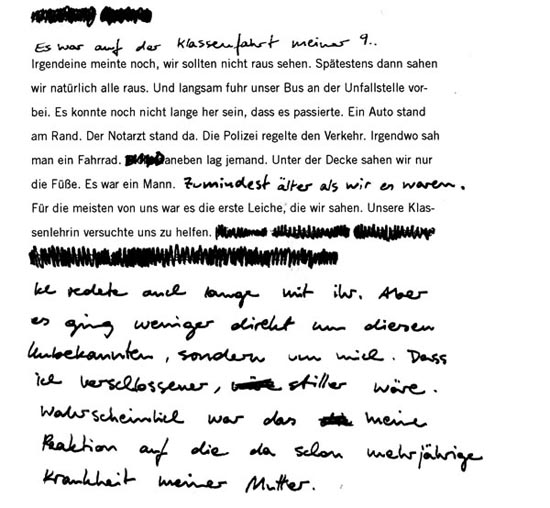 Es war auf der Klassenfahrt meiner 9..
Irgendeine meinte noch, wir sollten nicht raus sehen. Spätestens dann sahen
wir natürlich alle raus. Und langsam fuhr unser Bus an der Unfallstelle vor-
bei. Es konnte noch nicht lange her sein, dass es passierte. Ein Auto stand
am Rand. Der Notarzt stand da. Die Polizei regelte den Verkehr. Irgendwo sah
man ein Fahrrad. aneben lag jemand. Unter der Decke sahen wir nur
die Füße. Es war ein Mann. Zumindest älter als wir es waren.
Für die meisten von uns war es die erste Leiche, die wir sahen. Unsere Klas-
senlehrin versuchte uns zu helfen.
Ich redete auch lange mit ihr. Aber
es ging weniger direkt um diesen
Unbekannten, sondern um mich. Dass
ich verschlossener, stiller wäre.
Wahrscheinlich war das meine
Reaktion auf die da schon mehrjährige
Krankheit meiner Mutter.